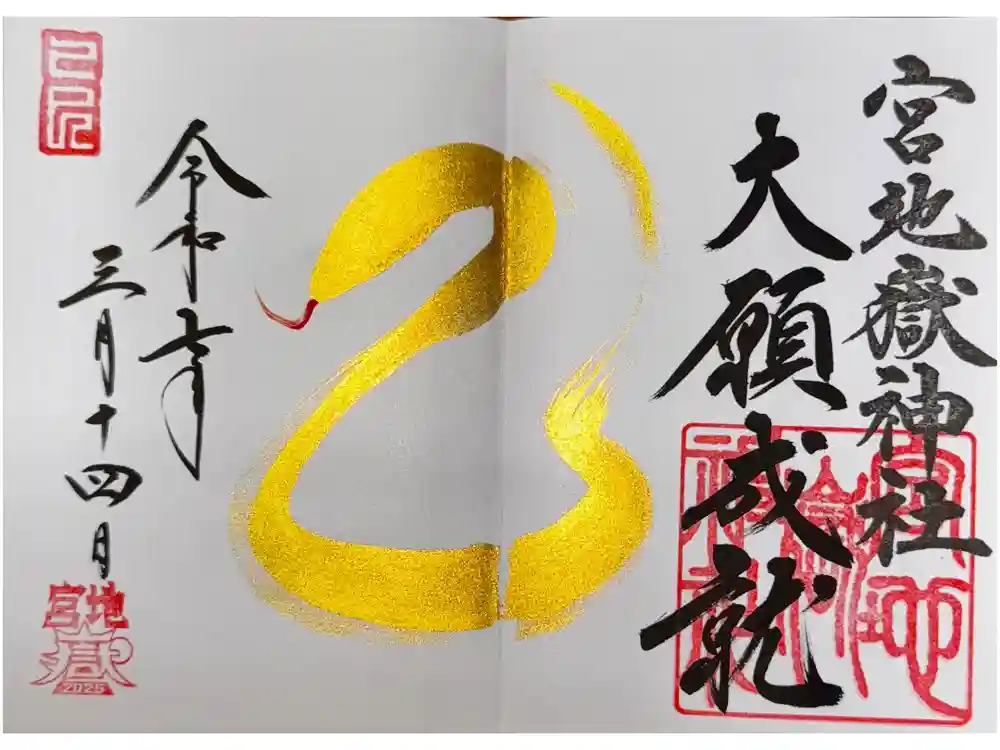 宮地嶽神社
大願成就
令和七年
三月十四日
己巳
宮地
嶽
2025